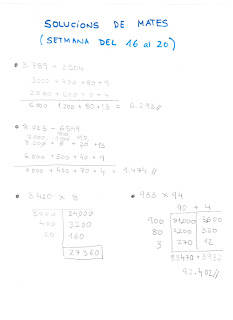 SOLUCIONS DE MATES
(SETMANA DEL 16 al 20)
3.789 + 2504
3000 + 700 + 80 + 9
2000 + 500 + 0 + 4
5000 1200 + 80 + 13 = 6.293//
8.023 - 6549
8.000 + 0 + 20 + 13
6000 + 500 + 40 + 9
1000 + 400 + 70 + 4 = 1.474//
3.420 x 8
3000 24000
400 3200
20 160
27360
983 x 94
90 + 4
900 81000 3600
80 7200 320
3 270 12
88470 + 3932
92.402//